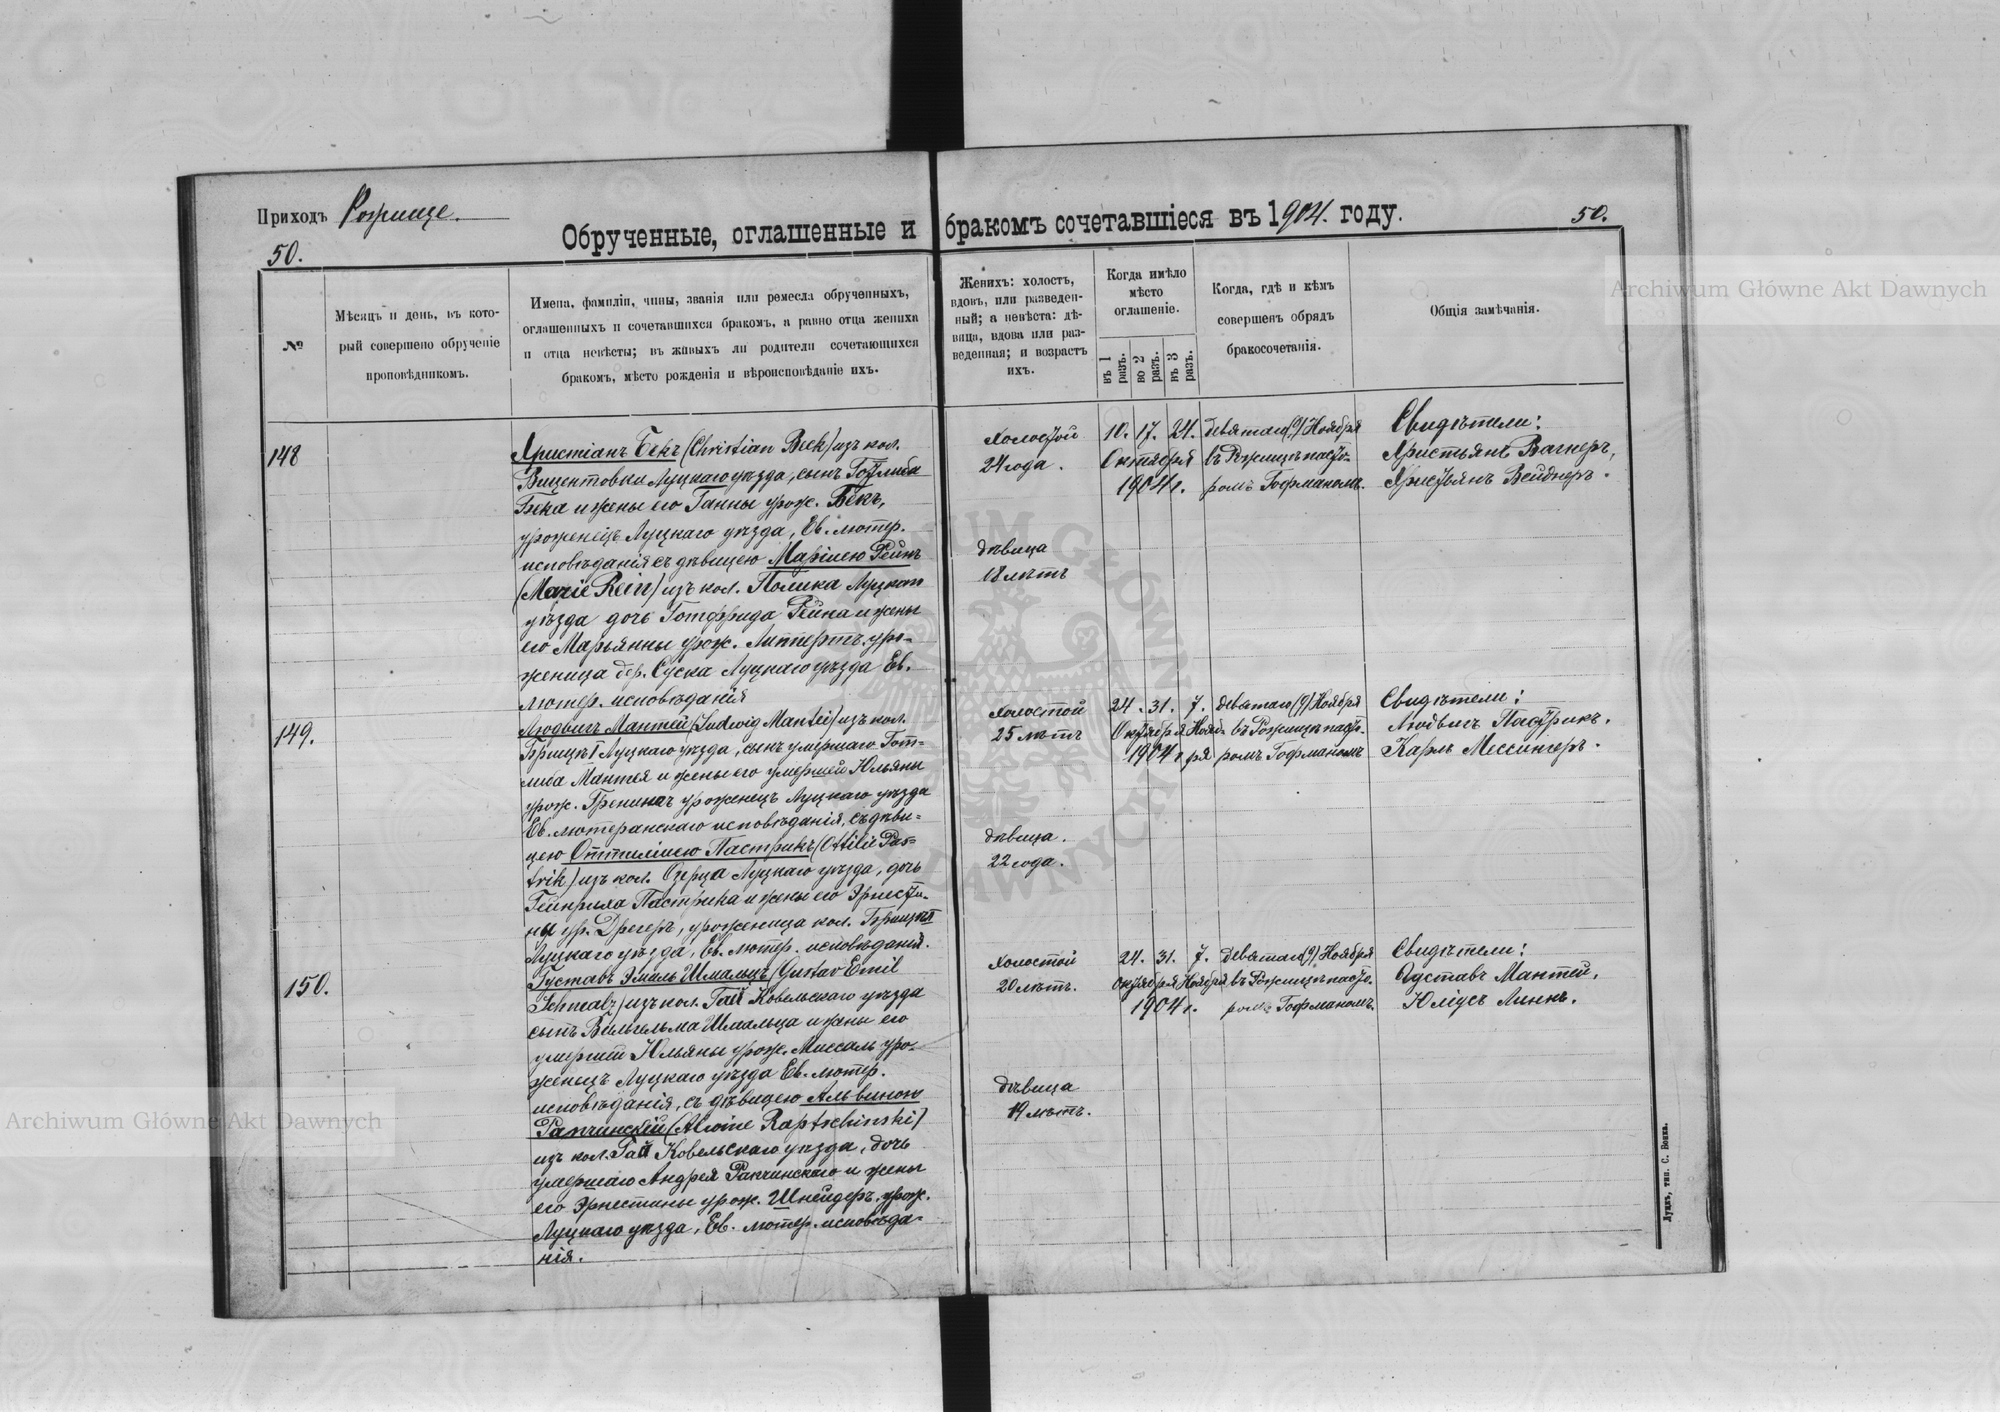 Приходъ Рожище.
50.
Обрученные, оглашенные и бракомъ сочетавшіеся въ 1904. году.
50.
№
Мѣсяцъ и день, въ кото-
рый совершено обрученіе
проповѣдникомъ.
Имена, фамиліи, чины, званія или ремесла обрученныхъ,
оглашенныхъ и сочетавшихся бракомъ, а равно отца жениха
и отца невѣсты; въ живыхъ ли родители сочетающихся
бракомъ, мѣсто рожденія и вѣроисповѣданіе ихъ.
Женихъ: холостъ,
вдовъ, или разведен-
ный; а невѣста: дѣ-
вица, вдова или раз-
веденная; и возрастъ
ихъ.
Когда имѣло
мѣсто
оглашеніе.
въ 1
разъ.
во 2
разъ.
въ 3
разъ.
Когда, гдѣ и кѣмъ
совершенъ обрядъ
бракосочетанія.
Общія замѣчанія.
148
Христіанъ Бекъ (Christian Beck) изъ кол.
Вицентовки Луцкаго уѣзда, сынъ Готлиба
Бека и жены его Ганны урож. Бекъ,
уроженецъ Луцкаго уѣзда, Ев. лютер.
исповѣданія съ дѣвицею Маріею Рейнъ
(Marie Rein) изъ кол. Полика Луцкаго
уѣзда дочь Готфрида Рейна и жены
его Марьянны урож. Липпертъ, уро-
женица дер. Суска Луцкаго уѣзда Ев.
лютер. исповѣданія
Холостой
24 года.
дѣвица
18 лѣтъ
10. 17. 24.
Октября
1904 г.
девятаго (9) Ноября
въ Рожищѣ пасто-
ромъ Гофманомъ.
Свидѣтели:
Христьянъ Вагнеръ,
Христьянъ Вейднеръ.
149.
Людвигъ Мантей (Ludwig Mantei) изъ кол.
Луцкаго уѣзда, сынъ умершаго Гот-
либа Мантея и жены его умершей Юльяны
урож. уроженецъ Луцкаго уѣзда
Ев. лютеранскаго исповѣданія, съ дѣви-
цею Оттиліею Пастрикъ (Ottilie Pas-
trik) изъ кол. Озерца Луцкаго уѣзда, дочь
Гейнриха Пастрика и жены его Эрнести-
ны ур. Дрегеръ, уроженица кол.
Луцкаго уѣзда, Ев. лютер. исповѣданія.
Холостой
25 лѣтъ
дѣвица.
22 года.
24. 31. 7.
Октября Нояб-
1904 г ря
девятаго (9) Ноября
въ Рожищѣ пасто-
ромъ Гофманомъ
Свидѣтели:
Людвигъ Пастрикъ.
Карлъ Мессингеръ.
150.
Густавъ Эмиль Шмальцъ (Gustav Emil
Schmalz) изъ кол. Гай Ковельскаго уѣзда
сынъ Вильгельма Шмальца и жены его
умершей Юльяны урож. Миссаль уро-
женецъ Луцкаго уѣзда Ев. лютер.
исповѣданія, съ дѣвицею Альвиною
Рапчинскій (Alwine Raptschinski)
изъ кол. Гай Ковельскаго уѣзда, дочь
умершаго Андрея Рапчинскаго и жены
его Эрнестины урож. Шнейдеръ, урож.
Луцкаго уѣзда, Ев. лютер. исповѣда-
нія.
Холостой
20 лѣтъ.
дѣвица
19 лѣтъ.
24. 31. 7.
Октября Ноября
1904 г.
девятаго (9) Ноября
въ Рожищѣ пасто-
ромъ Гофманомъ.
Свидѣтели:
Мантей,
Юліусъ Линкъ.
Луцкъ, тип. С. Бонка.
Archiwum Główne Akt Dawnych
Archiwum Główne Akt Dawnych